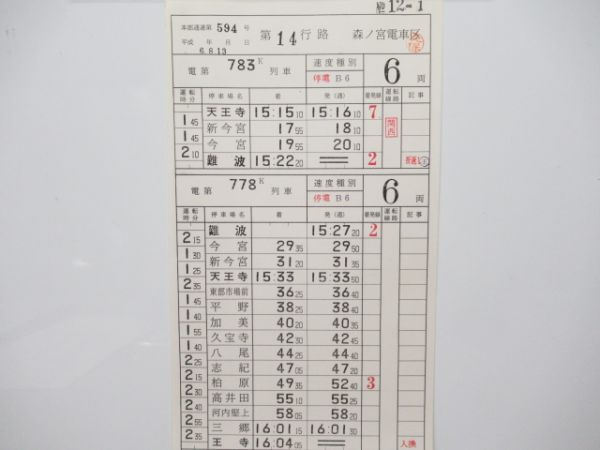 12-1
本部通達第 594 号
平成 年 月 日 第 14 行路 森ノ宮電車区
6.8.13
電第 783K 列車 速度種別 6両
停電 B6
運転時分 停車場名 着 発(通) 着発線 運転線路 記事
天王寺 15:15 10 15:16 10 7 関西
1 45
新今宮 17 55 18 10
1 45
今宮 19 55 20 10
2 10
難波 15:22 20 ═ 2
電第 778K 列車 速度種別 6両
停電 B6
運転時分 停車場名 着 発(通) 着発線 運転線路 記事
難波 15:27 20 2
2 15
今宮 29 35 29 50
1 30
新今宮 31 20 31 35
1 25
天王寺 15:33 15:33 50
2 35
東部市場前 36 25 36 40
1 45
平野 38 25 38 40
1 40
加美 40 20 40 35
1 55
久宝寺 42 30 42 45
1 40
八尾 44 25 44 40
2 25
志紀 47 05 47 20
2 15
柏原 49 35 52 40 3
2 30
高井田 55 10 55 25
2 40
河内堅上 58 05 58 20
2 55
三郷 16:01 15 16:01 30
2 35
王寺 16:04 05 ═ 入換